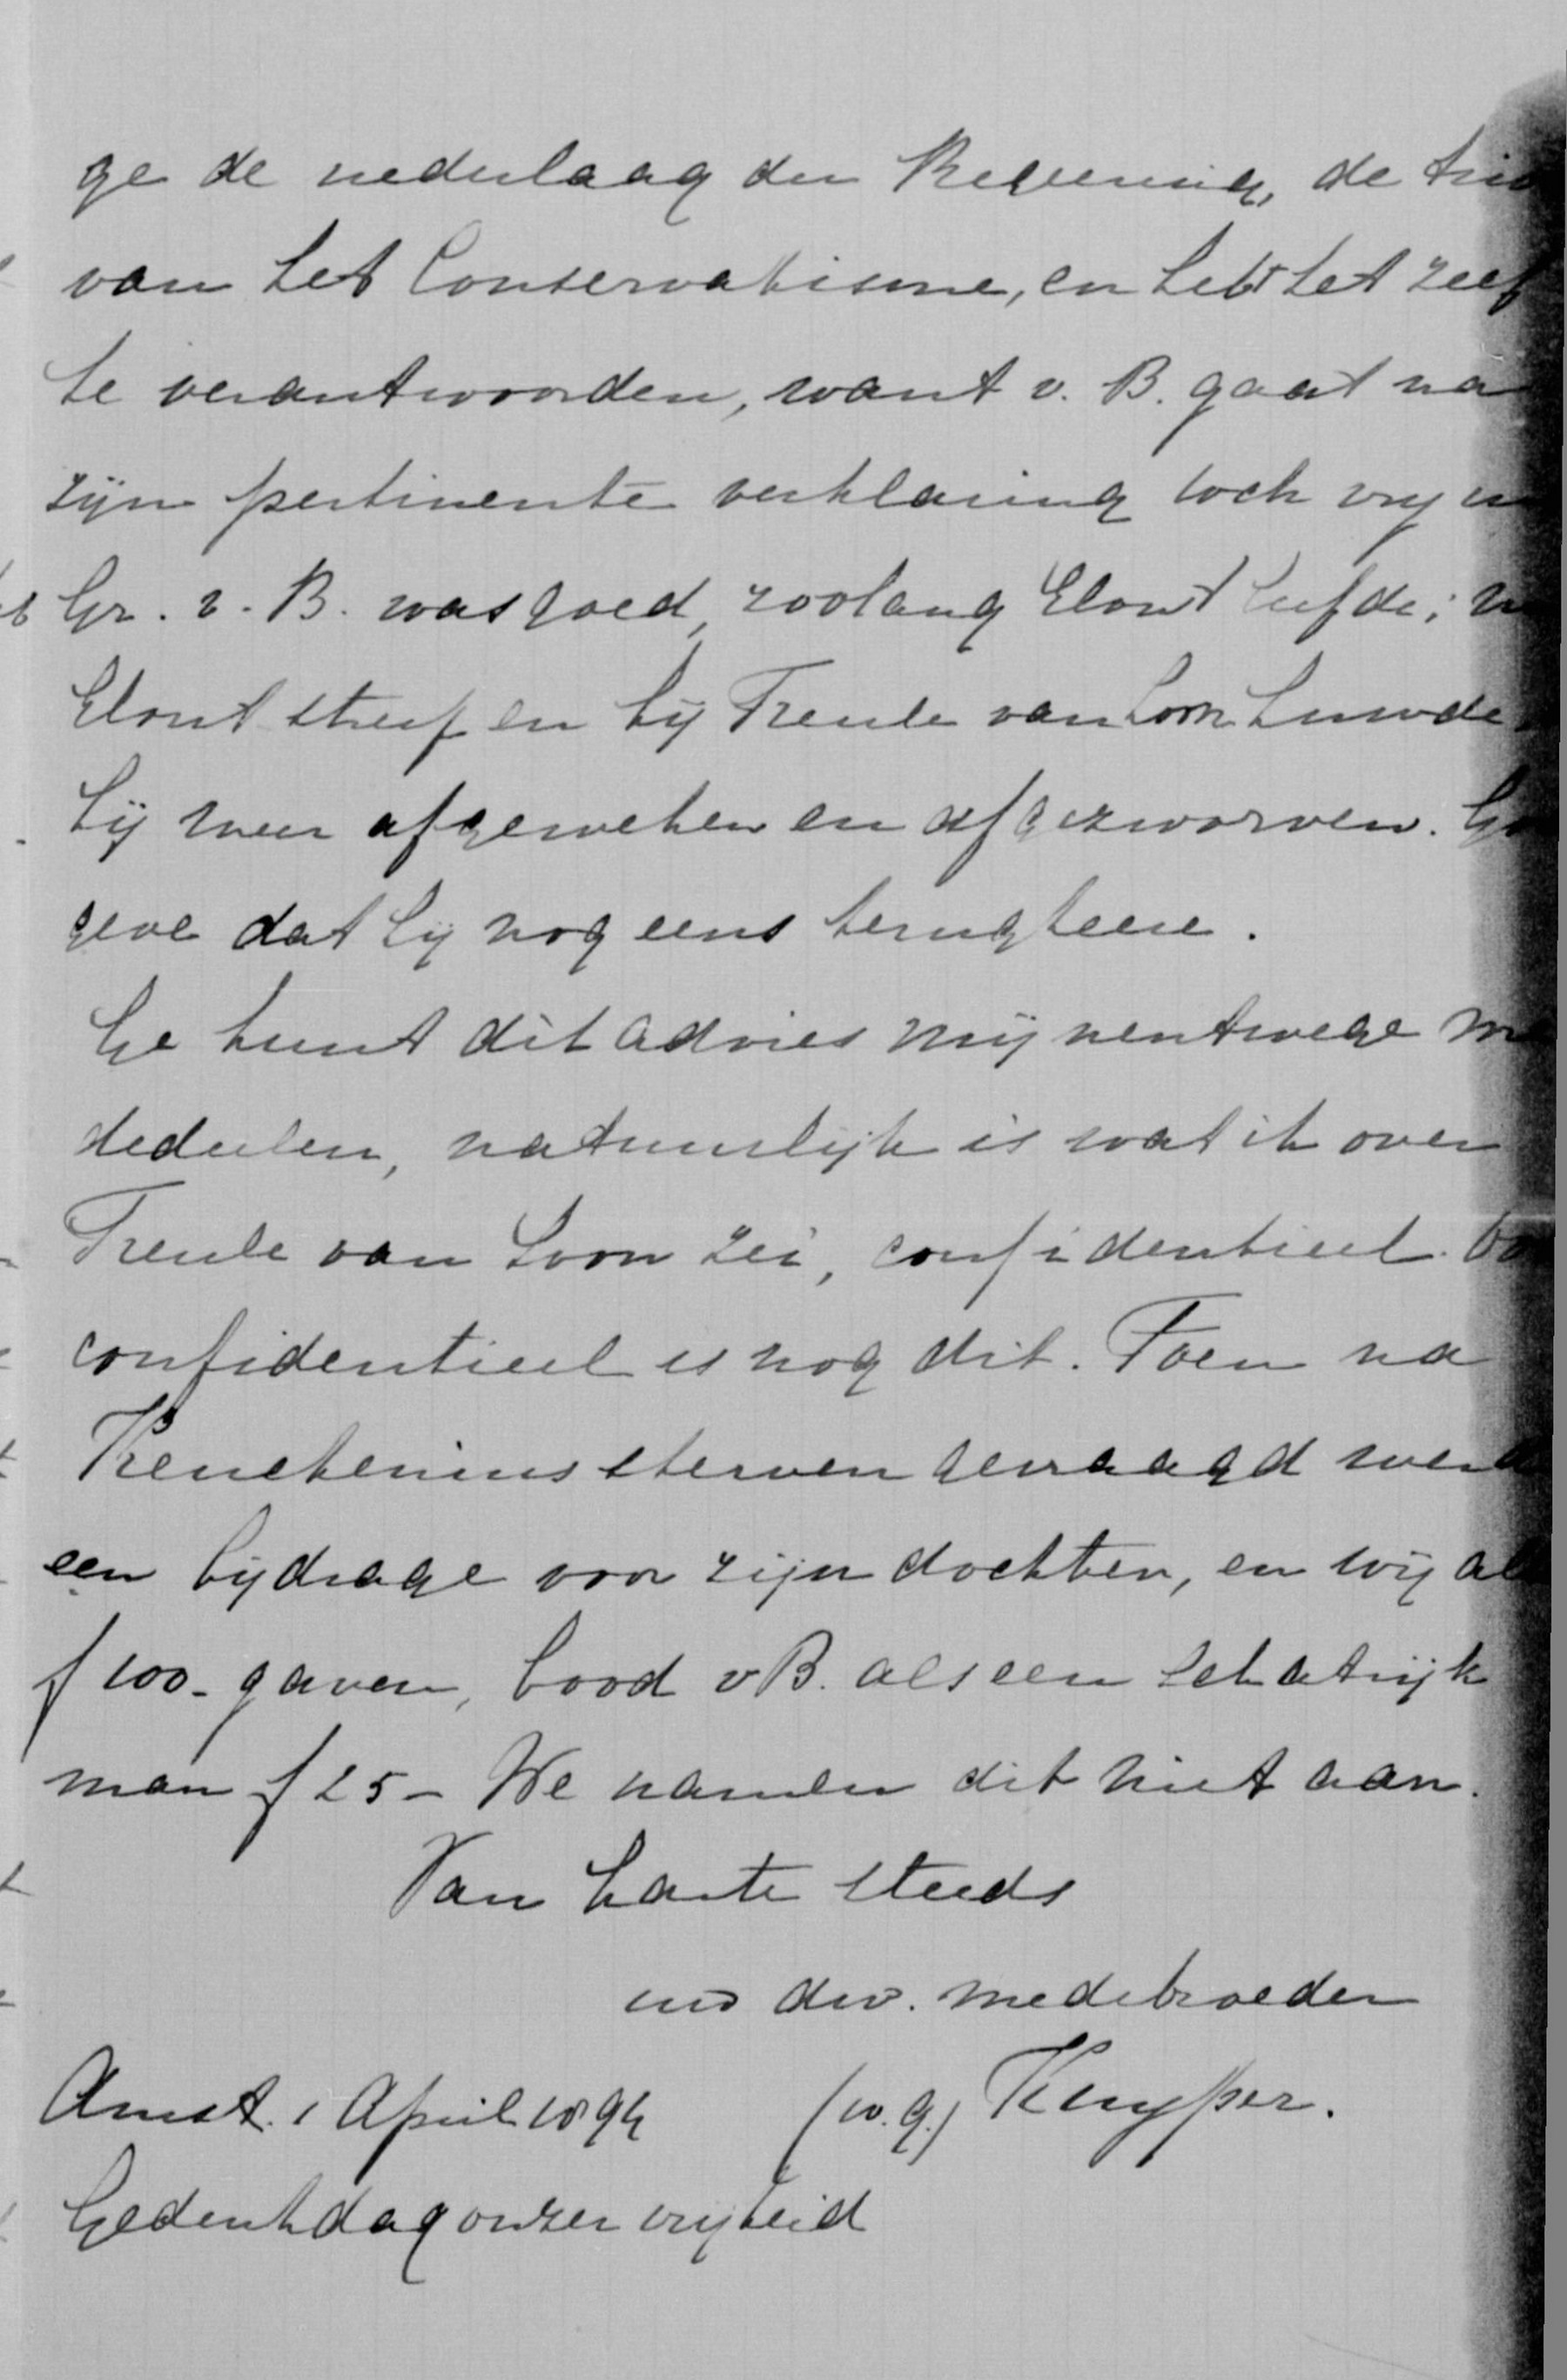 ge de nederlaag der Regeering, de trio
van het Conservatisme, en hebt het zelf
te verantwoorden, want v. B. gaat na
zijn pertinente verklaring toch vrij u
Gr. v. B. was goed, zoolang Elout leefde; n
Elout stierf en hij Freule van Loon huwde
hij meer afgeweken en afgezworven. Go
geve dat hij nog eens terugkeere.
Ge kunt dit advies mijnentwege me
dedeelen, natuurlijk is wat ik over
Freule van Loon zei, confidentieel.
confidentieel is nog dit. Toen na
Keuchenius sterven gevraagd werd
een bijdrage voor zijn dochter, en wij al
f 100.- gaven, bood v B. als een schatrijk
man f 25 - We namen dit niet aan.
Van harte steeds
uw dw. medebroeder
Amst. 1 April 1894 (w.g.) Kuyper.
Gedenkdag onzer vrijheid